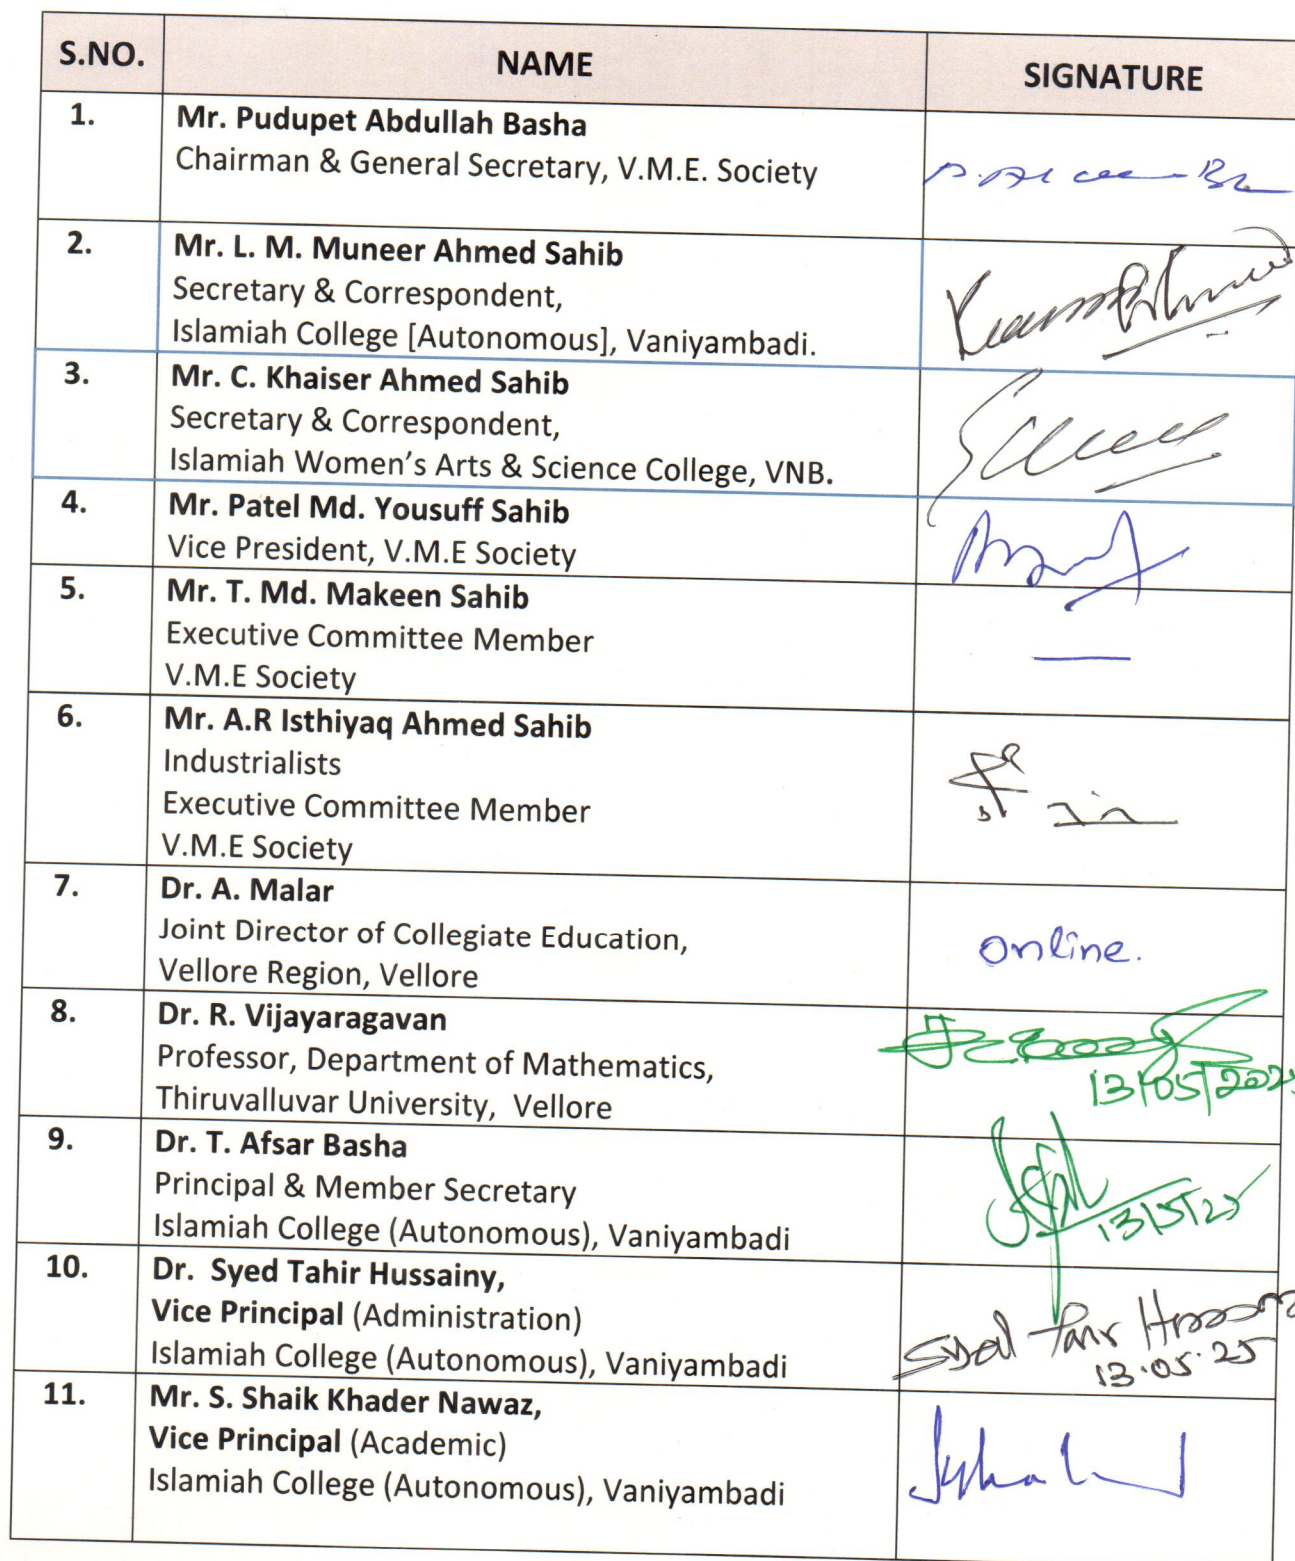 S.NO. NAME SIGNATURE
1. Mr. Pudupet Abdullah Basha
Chairman & General Secretary, V.M.E. Society
2. Mr. L. M. Muneer Ahmed Sahib
Secretary & Correspondent,
Islamiah College [Autonomous], Vaniyambadi.
3. Mr. C. Khaiser Ahmed Sahib
Secretary & Correspondent,
Islamiah Women's Arts & Science College, VNB.
4. Mr. Patel Md. Yousuff Sahib
Vice President, V.M.E Society
5. Mr. T. Md. Makeen Sahib
Executive Committee Member
V.M.E Society
6. Mr. A.R Isthiyaq Ahmed Sahib
Industrialists
Executive Committee Member
V.M.E Society
7. Dr. A. Malar
Joint Director of Collegiate Education,
Vellore Region, Vellore
online.
8. Dr. R. Vijayaragavan
Professor, Department of Mathematics,
Thiruvalluvar University, Vellore
13/05/2025
9. Dr. T. Afsar Basha
Principal & Member Secretary
Islamiah College (Autonomous), Vaniyambadi
13/5/25
10. Dr. Syed Tahir Hussainy,
Vice Principal (Administration)
Islamiah College (Autonomous), Vaniyambadi
13.05.25
11. Mr. S. Shaik Khader Nawaz,
Vice Principal (Academic)
Islamiah College (Autonomous), Vaniyambadi